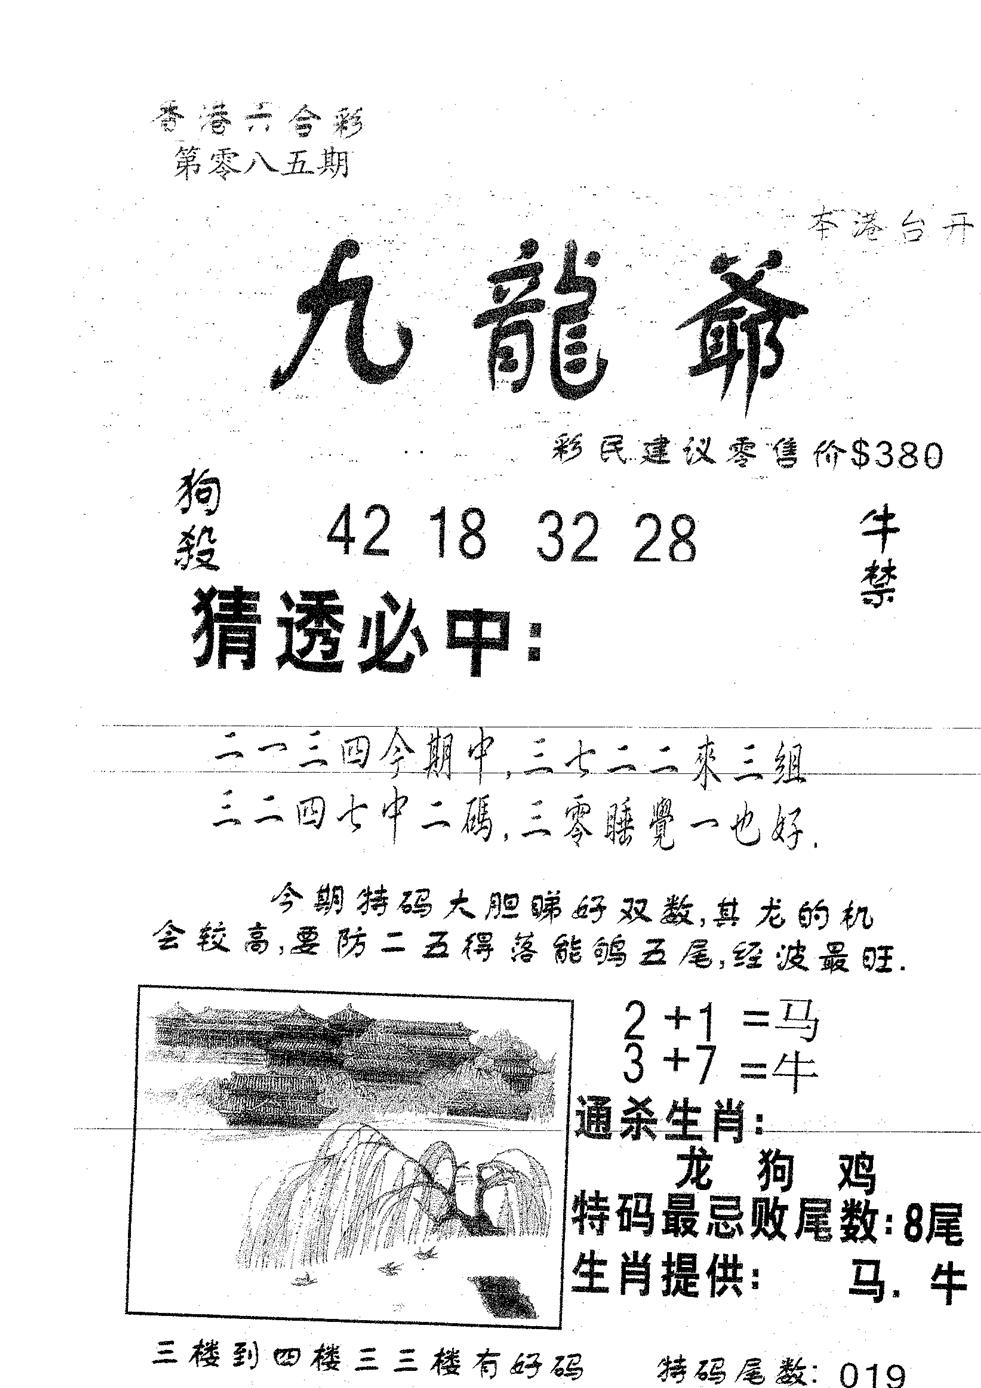 香港六合彩
第零八五期
本港台开
九龍爺
彩民建议零售价$380
狗殺
42 18 32 28
牛禁
猜透必中:
二一三四今期中,三七二二來三组
三二四七中二碼,三零睡覺一也好.
今期特码大胆睇好双数,其龙的机
会较高,要防二五得落能鸲五尾,经波最旺.
2+1=马
3+7=牛
通杀生肖:
龙 狗 鸡
特码最忌败尾数:8尾
生肖提供: 马. 牛
三楼到四楼三三楼有好码 特码尾数: 019